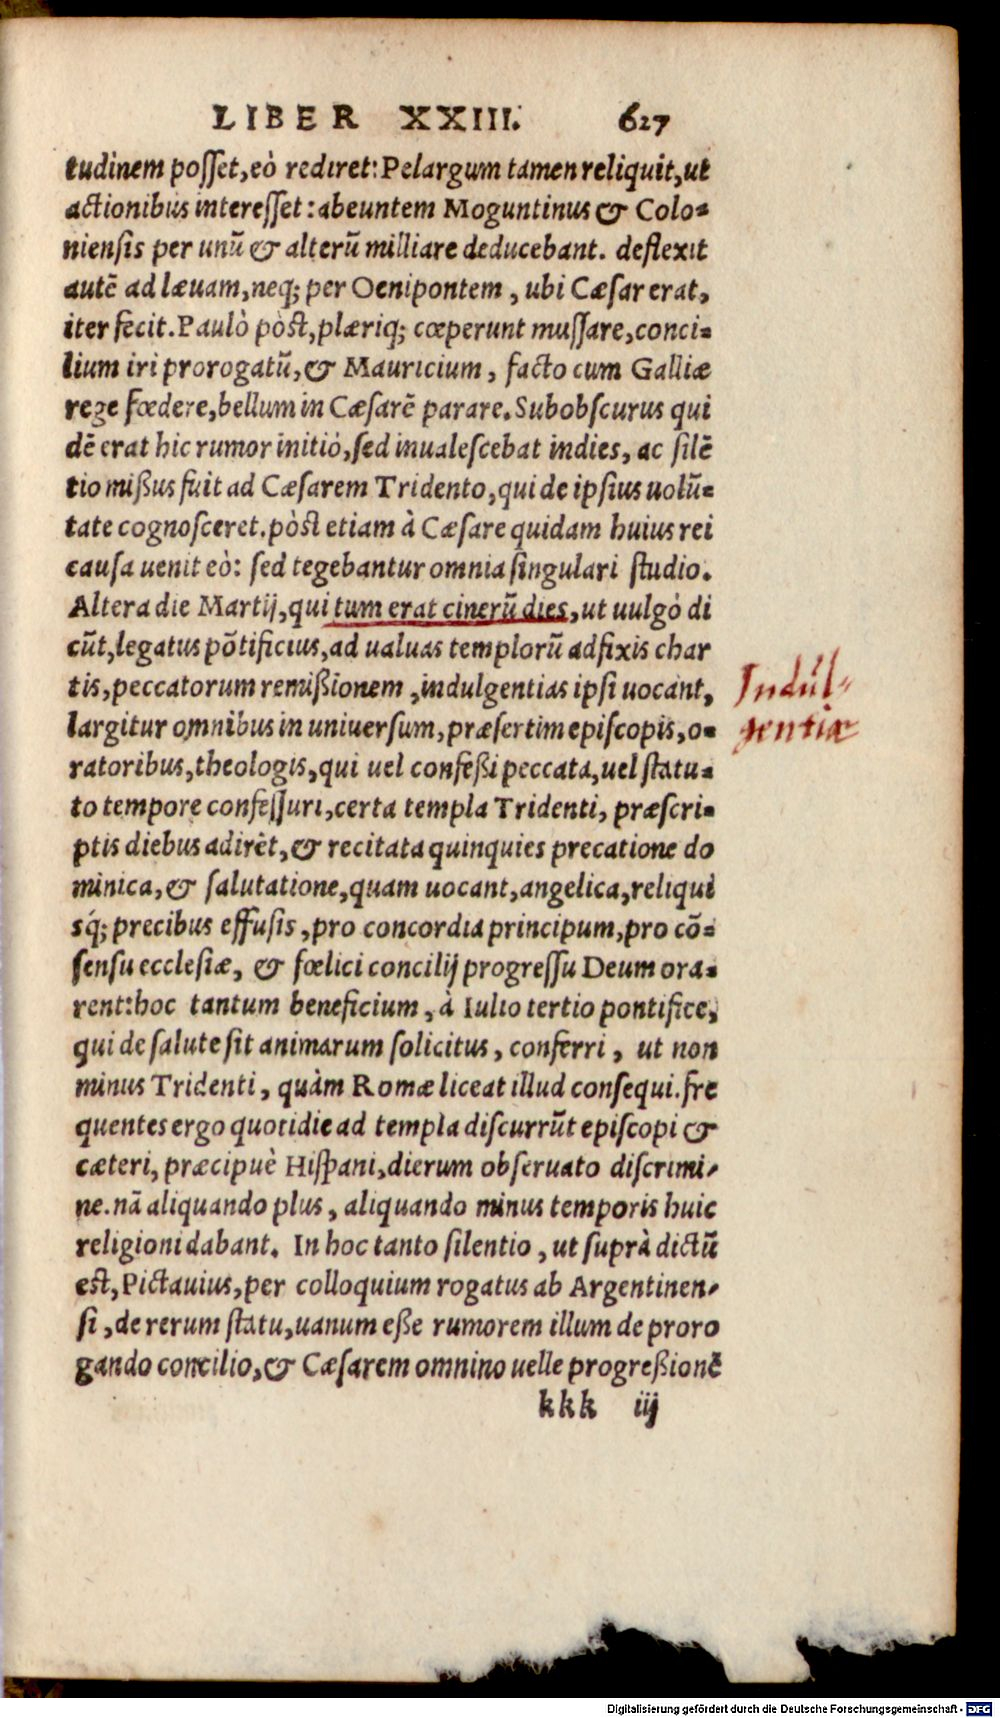 LIBER XXIII. 627
tudinem posset, eò rediret: Pelargum tamen reliquit, ut
actionibus interesset: abeuntem Moguntinus & Colo-
niensis per unū & alterū milliare deducebant. deflexit
autē ad lævam, neq; per Oenipontem, ubi Cæsar erat,
iter fecit. Paulò pòst, plæriq; cœperunt mussare, conci-
lium iri prorogatū, & Mauricium, facto cum Galliæ
rege fœdere, bellum in Cæsarē parare. Subobscurus qui
dē erat hic rumor initiò, sed inualescebat indies, ac silē
tio mißus fuit ad Cæsarem Tridento, qui de ipsius uolū-
tate cognosceret. pòst etiam à Cæsare quidam huius rei
causa uenit eò: sed tegebantur omnia singulari studio.
Altera die Martij, qui tum erat cinerū dies, ut uulgò di
cūt, legatus pōtificius, ad ualuas templorū adfixis char
tis, peccatorum remißionem, indulgentias ipsi uocant,
largitur omnibus in uniuersum, præsertim episcopis, o-
ratoribus, theologis, qui uel confeßi peccata, uel statu-
to tempore confessuri, certa templa Tridenti, præscri-
ptis diebus adirēt, & recitata quinquies precatione do
minica, & salutatione, quam uocant, angelica, reliqui
sq́; precibus effusis, pro concordia principum, pro cō-
sensu ecclesiæ, & fœlici concilij progressu Deum ora-
rent: hoc tantum beneficium, à Iulio tertio pontifice,
qui de salute sit animarum solicitus, conferri, ut non
minus Tridenti, quàm Romæ liceat illud consequi. fre
quentes ergo quotidie ad templa discurrūt episcopi &
cæteri, præcipuè Hispani, dierum obseruato discrimi-
ne. nā aliquando plus, aliquando minus temporis huic
religioni dabant. In hoc tanto silentio, ut suprà dictū
est, Pictauius, per colloquium rogatus ab Argentinen-
si, de rerum statu, uanum eße rumorem illum de proro
gando concilio, & Cæsarem omnino uelle progreßionē
kkk iij
Indul-
gentiæ
Digitalisierung gefördert durch die Deutsche Forschungsgemeinschaft - DFG